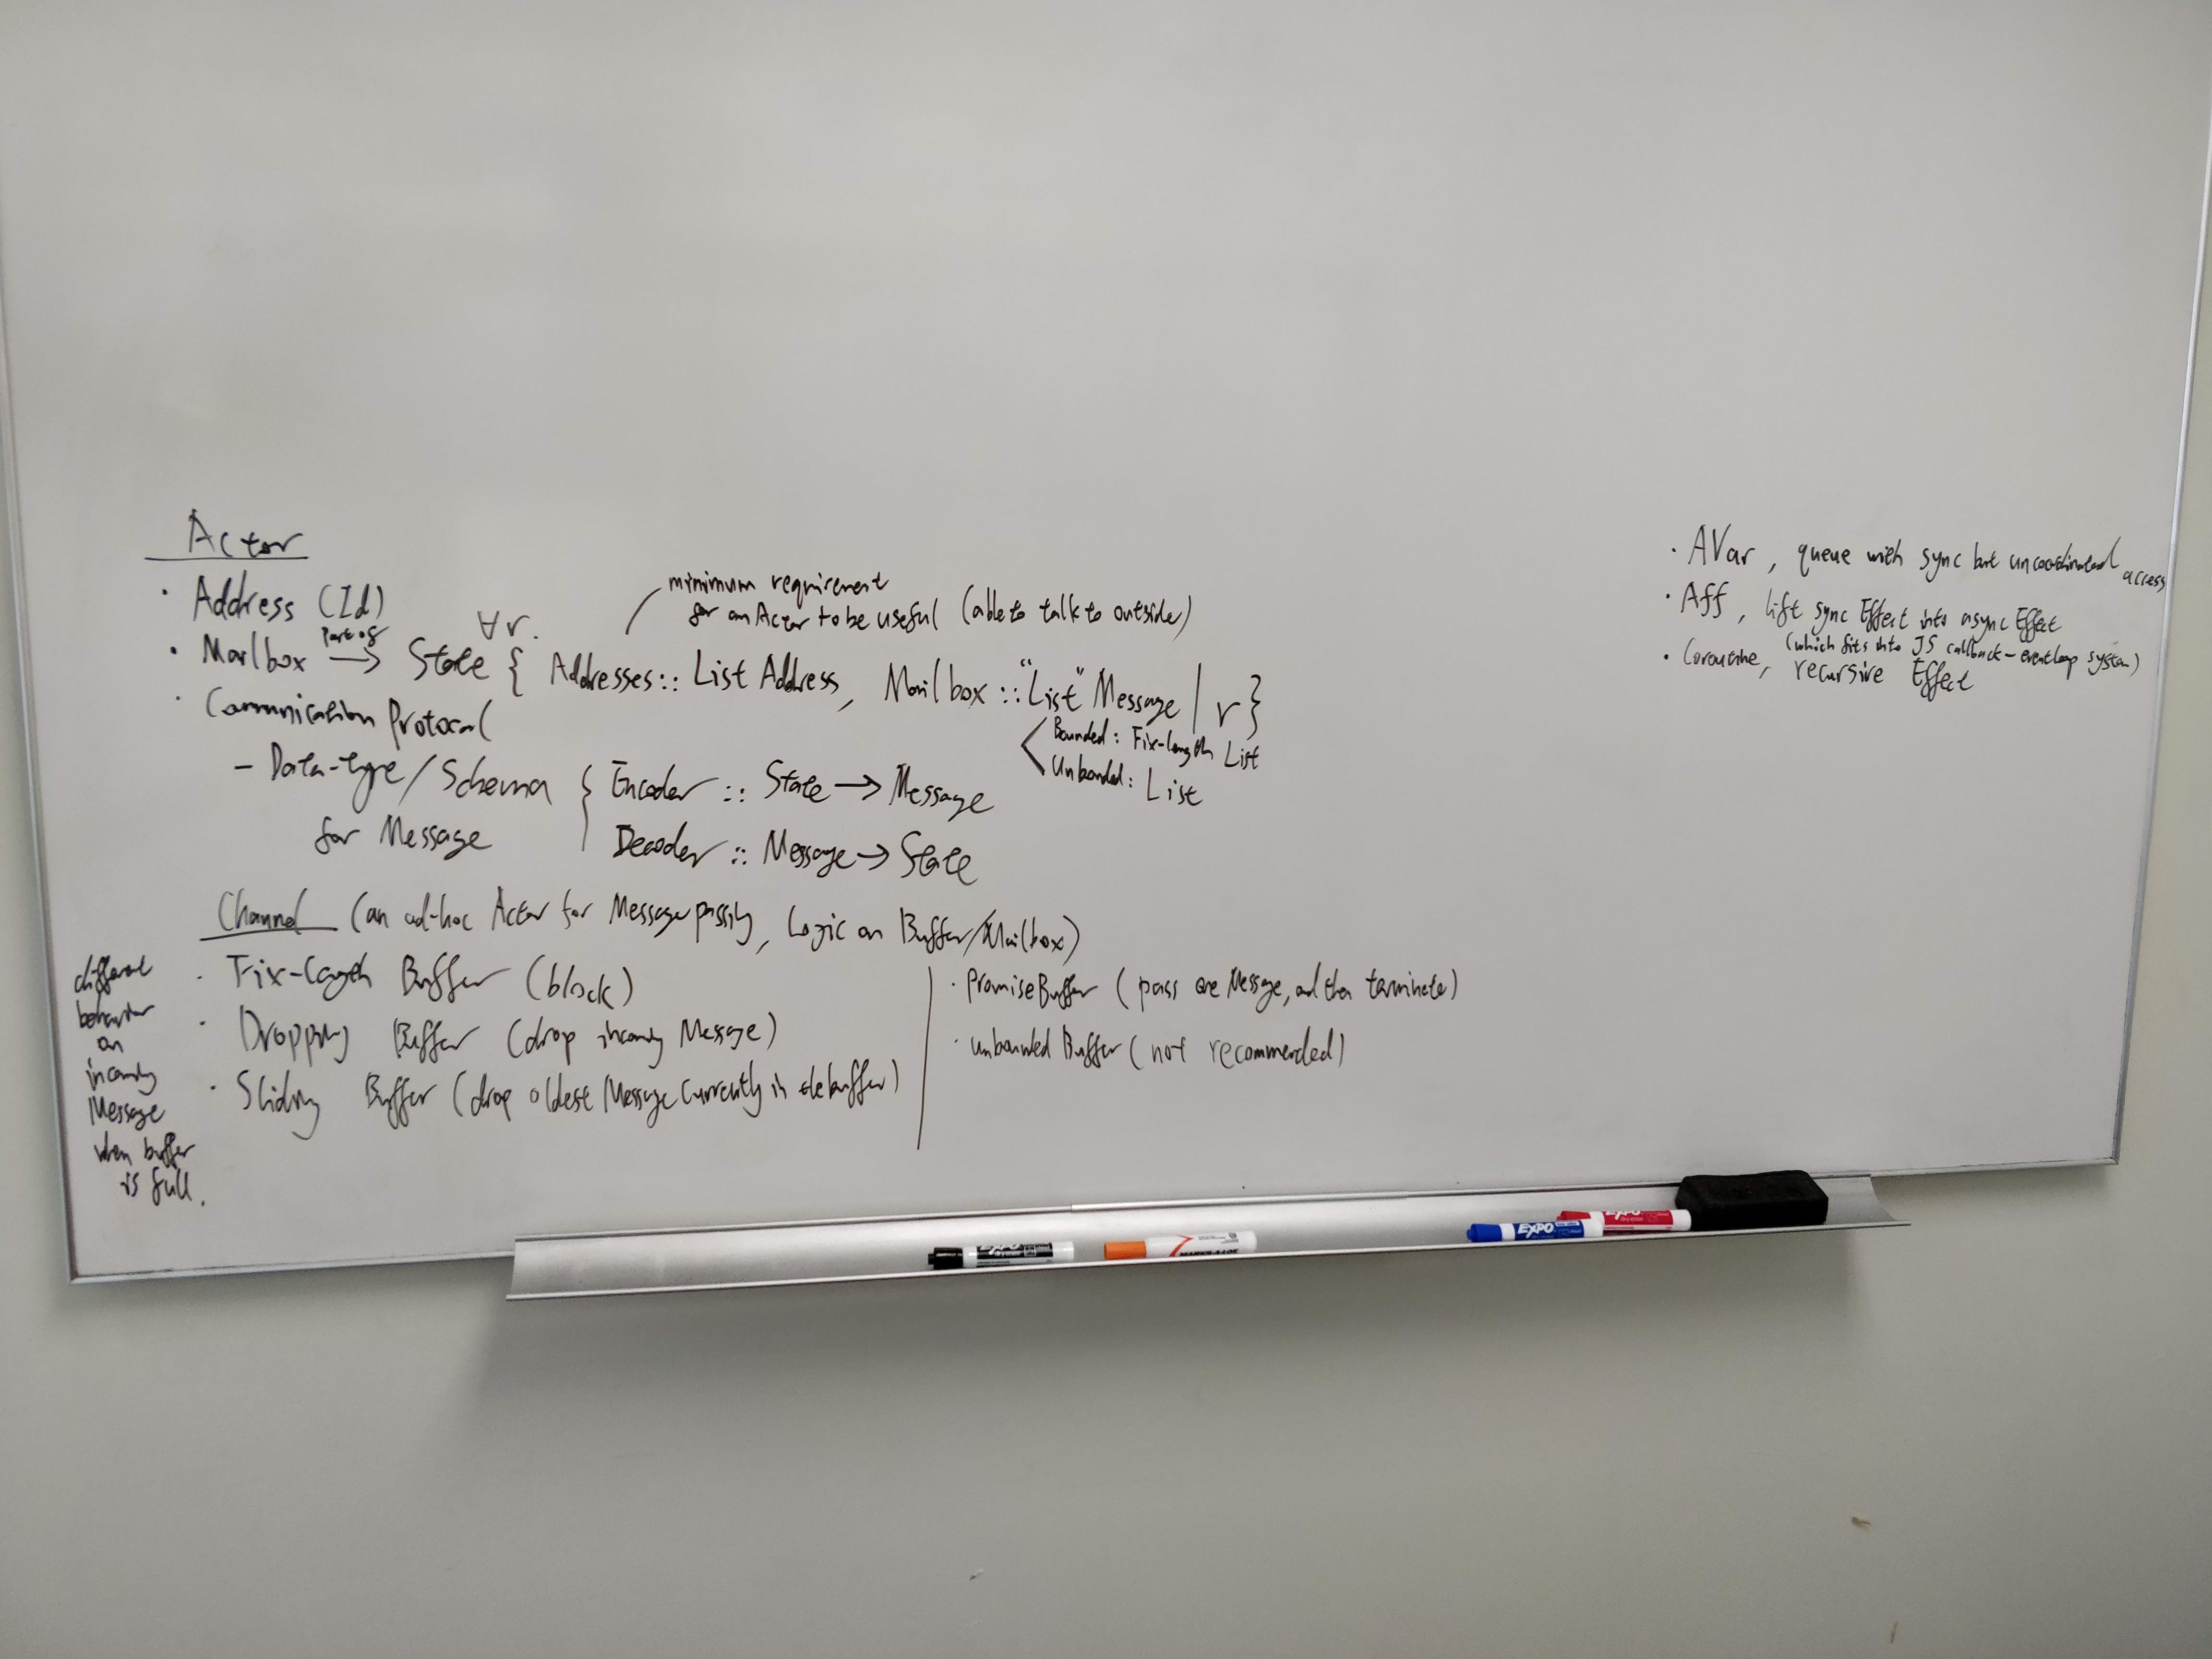 Actor
· Address (Id)
· Mailbox part of → State ∀r. { Addresses :: List Address, Mailbox :: "List" Message | r }
minimum requirement
for an Actor to be useful (able to talk to outside)
Bounded: Fix-length List
Unbounded: List
· Communication Protocol
- Data-type/Schema
for Message
{ Encoder :: State → Message
Decoder :: Message → State
Channel (an ad-hoc Actor for Message passing, Logic on Buffer/Mailbox)
different
behavior
on
incoming
Message
when buffer
is full.
· Fix-length Buffer (block)
· Dropping Buffer (drop incoming Message)
· Sliding Buffer (drop oldest Message currently in the buffer)
· PromiseBuffer (pass one Message, and then terminate)
· unbounded Buffer (not recommended)
· AVar, queue with sync but uncoordinated access
· Aff, lift sync Effect into async Effect
(which fits into JS callback-eventloop system)
· Coroutine, recursive Effect
EXPO
EXPO
EXPO
MARKS-A-LOT